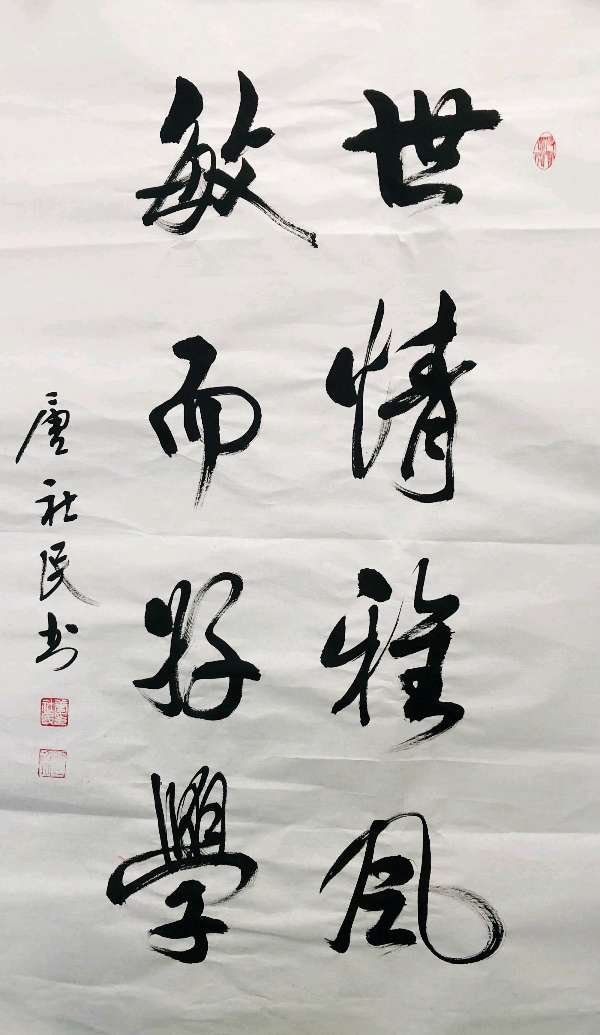 世情雅风
敏而好學
社民书